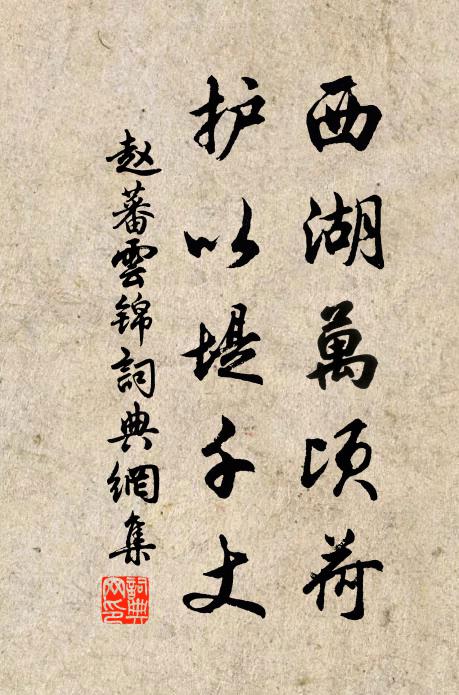 西湖萬頃荷
护以堤千丈
赵蕃雲锦詞典網集
詞典網印